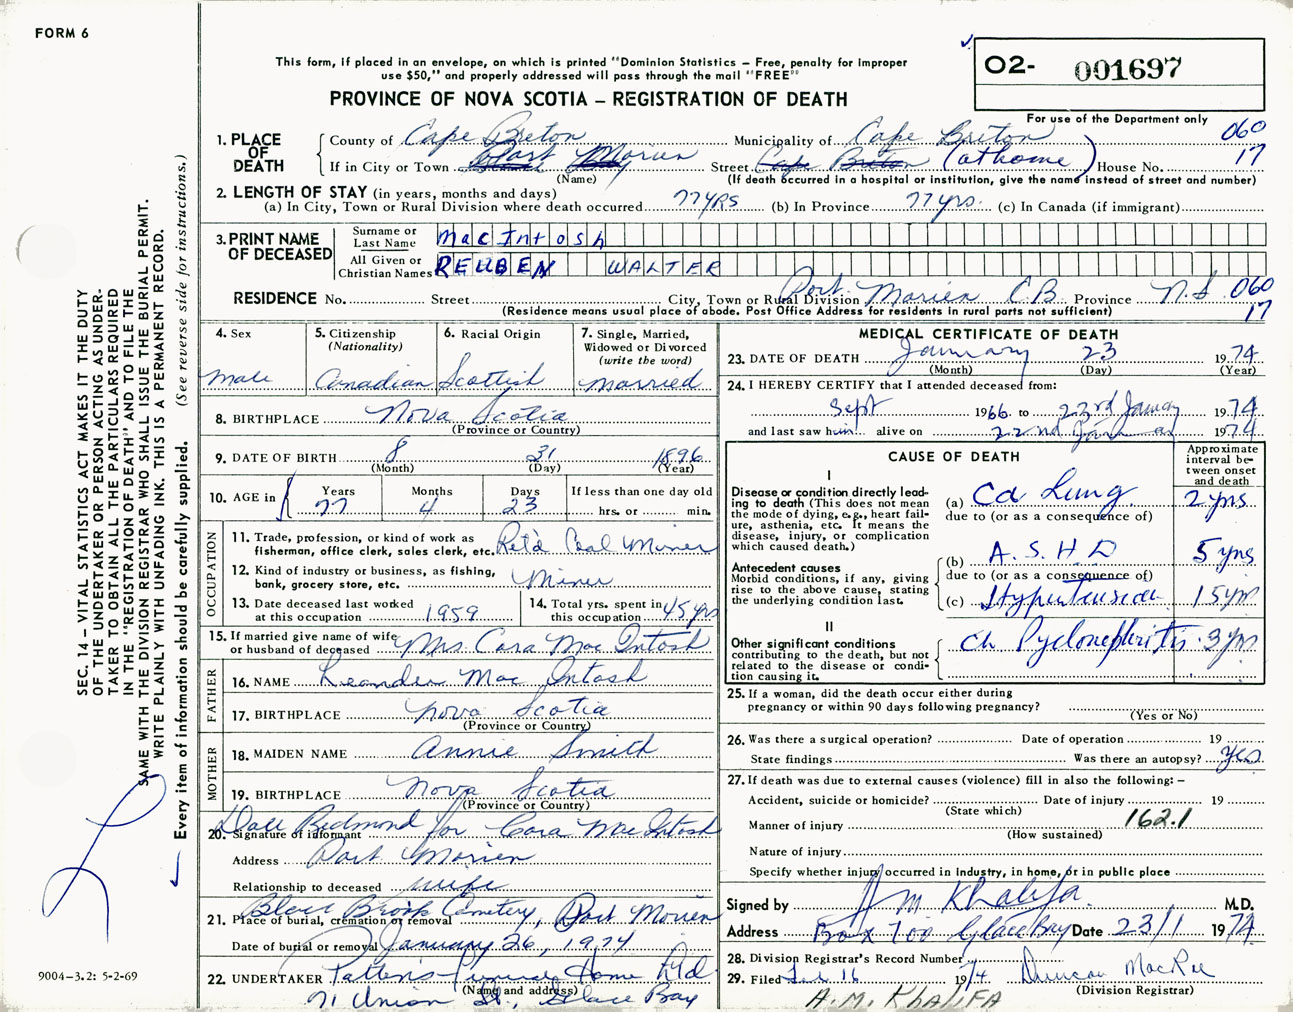 FORM 6
This form, if placed in an envelope, on which is printed "Dominion Statistics – Free, penalty for improper
use $50," and properly addressed will pass through the mail "FREE"
PROVINCE OF NOVA SCOTIA – REGISTRATION OF DEATH
02- 001697
For use of the Department only
060
17
1. PLACE OF DEATH
County of Cape Breton Municipality of Cape Breton
If in City or Town Port Morien Street Cape Breton (at home) House No.
(Name) (If death occurred in a hospital or institution, give the name instead of street and number)
2. LENGTH OF STAY (in years, months and days)
(a) In City, Town or Rural Division where death occurred 77 yrs (b) In Province 77 yrs. (c) In Canada (if immigrant)
3. PRINT NAME OF DECEASED
Surname or Last Name MacIntosh
All Given or Christian Names REUBEN WALTER
RESIDENCE No. Street City, Town or Rural Division Port Morien C.B. Province N.S. 060
(Residence means usual place of abode. Post Office Address for residents in rural parts not sufficient) 17
4. Sex
male
5. Citizenship
(Nationality)
Canadian
6. Racial Origin
Scottish
7. Single, Married,
Widowed or Divorced
(write the word)
Married
8. BIRTHPLACE Nova Scotia
(Province or Country)
9. DATE OF BIRTH 8 31 1896
(Month) (Day) (Year)
10. AGE in
Years Months Days If less than one day old
77 4 23 hrs. or min.
OCCUPATION
11. Trade, profession, or kind of work as
fisherman, office clerk, sales clerk, etc. Ret'd Coal Miner
12. Kind of industry or business, as fishing,
bank, grocery store, etc. Miner
13. Date deceased last worked
at this occupation 1959
14. Total yrs. spent in
this occupation 45 yrs
15. If married give name of wife
or husband of deceased Mrs. Cora MacIntosh
FATHER
16. NAME Leander MacIntosh
17. BIRTHPLACE Nova Scotia
(Province or Country)
MOTHER
18. MAIDEN NAME Annie Smith
19. BIRTHPLACE Nova Scotia
(Province or Country)
20. Signature of informant Dale Redmond for Cora MacIntosh
Address Port Morien
Relationship to deceased wife
21. Place of burial, cremation or removal Black Brook Cemetery, Port Morien
Date of burial or removal January 26, 1974
22. UNDERTAKER Patten's Funeral Home Ltd
(Name and address)
71 Union St., Glace Bay
MEDICAL CERTIFICATE OF DEATH
23. DATE OF DEATH January 23 1974
(Month) (Day) (Year)
24. I HEREBY CERTIFY that I attended deceased from:
Sept 1966 to 23rd January 1974
and last saw him alive on 22nd January 1974
CAUSE OF DEATH
Approximate
interval be-
tween onset
and death
I
Disease or condition directly lead-
ing to death (This does not mean
the mode of dying, e.g., heart fail-
ure, asthenia, etc. It means the
disease, injury, or complication
which caused death.)
(a) Ca Lung 2 yrs
due to (or as a consequence of)
Antecedent causes
Morbid conditions, if any, giving
rise to the above cause, stating
the underlying condition last.
(b) A.S.H.D 5 yrs
due to (or as a consequence of)
(c) Hypertension 15 yrs
II
Other significant conditions
contributing to the death, but not
related to the disease or condi-
tion causing it.
Ch Pyelonephritis 3 yrs
25. If a woman, did the death occur either during
pregnancy or within 90 days following pregnancy?
(Yes or No)
26. Was there a surgical operation? Date of operation 19
State findings Was there an autopsy? Yes
27. If death was due to external causes (violence) fill in also the following: –
Accident, suicide or homicide? Date of injury 19
(State which)
Manner of injury 162.1
(How sustained)
Nature of injury
Specify whether injury occurred in Industry, in home, or in public place
Signed by A M Khalifa. M.D.
Address Box 700 Glace Bay Date 23/1 1974
28. Division Registrar's Record Number
29. Filed Feb 16 1974 Duncan MacRae
(Division Registrar)
A.M. KHALIFA
SEC. 14 – VITAL STATISTICS ACT MAKES IT THE DUTY
OF THE UNDERTAKER OR PERSON ACTING AS UNDER-
TAKER TO OBTAIN ALL THE PARTICULARS REQUIRED
IN THE "REGISTRATION OF DEATH" AND TO FILE THE
SAME WITH THE DIVISION REGISTRAR WHO SHALL ISSUE THE BURIAL PERMIT.
WRITE PLAINLY WITH UNFADING INK. THIS IS A PERMANENT RECORD.
Every item of information should be carefully supplied. (See reverse side for instructions.)
9004-3.2: 5-2-69